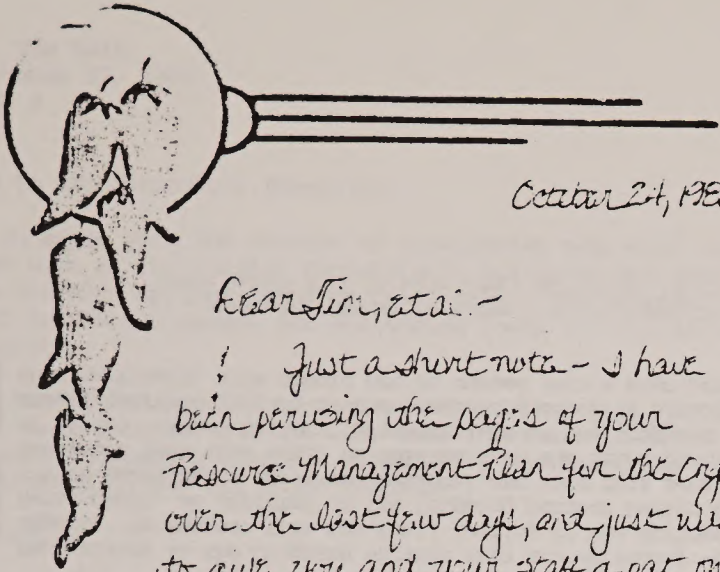 October 24, 198
Dear Jim, et al. -
! Just a short note - I have
been perusing the pages of your
Resource Management Plan for the
over the last few days, and just
to give you and your staff a pat